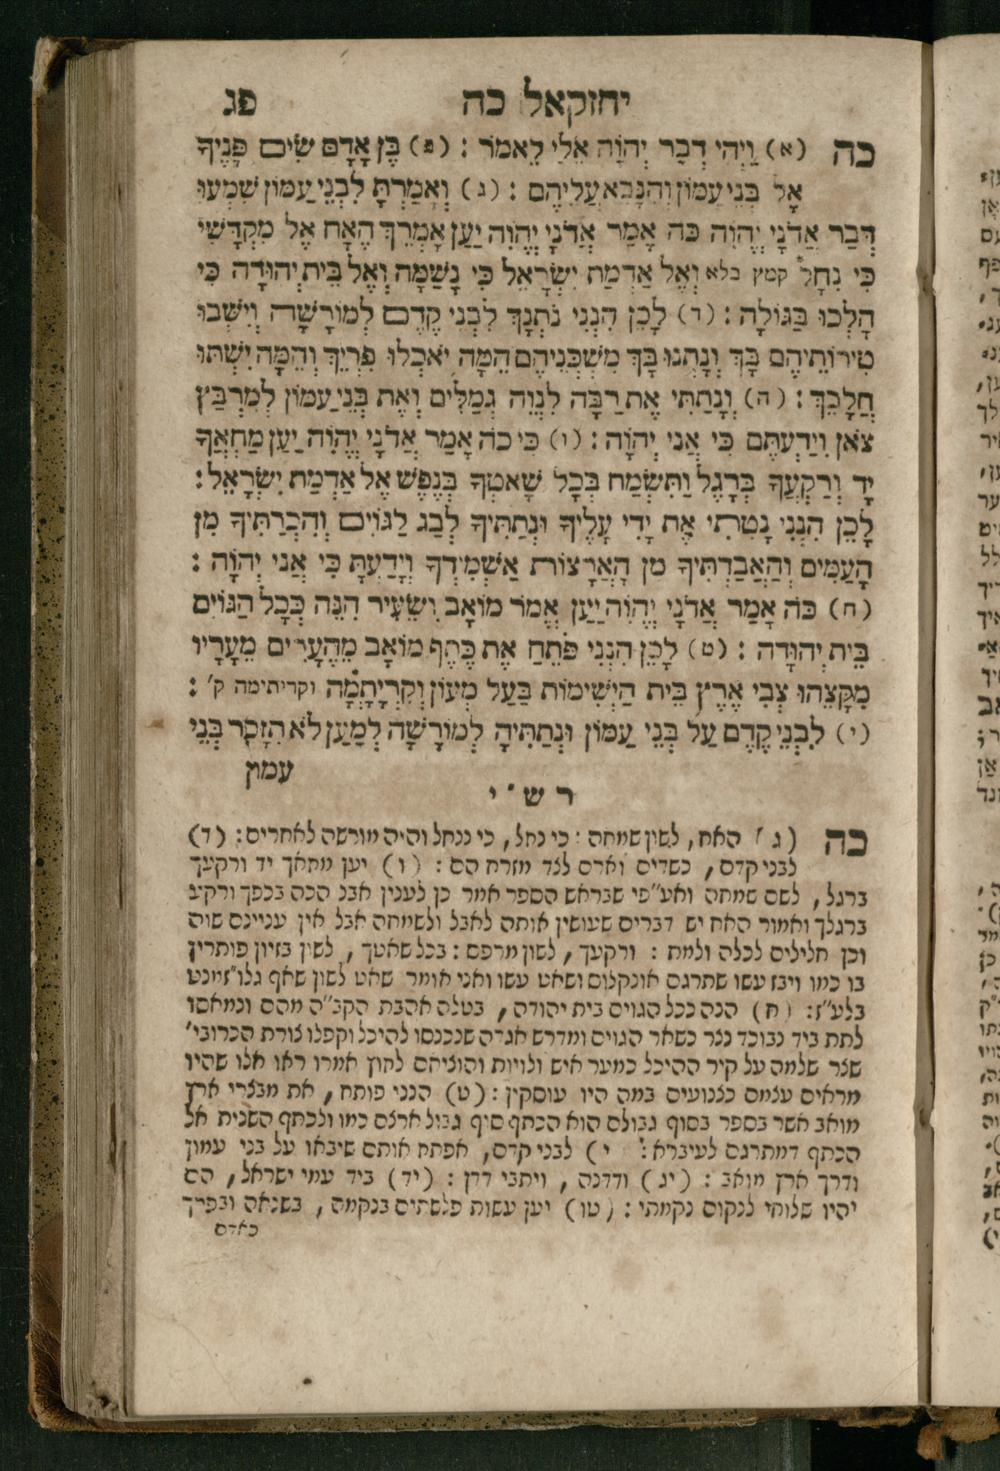 יחזקאל כה פג
כה (א) וַיְהִי דְבַר יְהוָֹה אֵלַי לֵאמֹר : (ב) בֶּן אָדָם שִׂים פָּנֶיךָ
אֶל בְּנֵי עַמּוֹן וְהִנָּבֵא עֲלֵיהֶם : (ג) וְאָמַרְתָּ לִבְנֵי עַמּוֹן שִׁמְעוּ
דְּבַר אֲדֹנָי יֱהֹוִה כֹּה אָמַר אֲדֹנָי יֱהֹוִה יַעַן אָמְרֵךְ הֶאָח אֶל מִקְדָּשִׁי
כִּי נִחָל קמץ בלא וְאֶל אַדְמַת יִשְׂרָאֵל כִּי נָשַׁמָּה וְאֶל בֵּית יְהוּדָה כִּי
הָלְכוּ בַּגּוֹלָה : (ד) לָכֵן הִנְנִי נֹתְנָךְ לִבְנֵי קֶדֶם לְמוֹרָשָׁה וְיִשְּׁבוּ
טִירוֹתֵיהֶם בָּךְ וְנָתְנוּ בָךְ מִשְׁכְּנֵיהֶם הֵמָּה יֹאכְלוּ פִרְיֵךְ וְהֵמָּה יִשְׁתּוּ
חֲלָבֵךְ : (ה) וְנָתַתִּי אֶת רַבָּה לִנְוֵה גְמַלִּים וְאֶת בְּנֵי עַמּוֹן לְמִרְבַּץ
צֹאן וִידַעְתֶּם כִּי אֲנִי יְהוָֹה : (ו) כִּי כֹה אָמַר אֲדֹנָי יֱהֹוִה יַעַן מַחְאֲךָ
יָד וְרַקְעֲךָ בְּרָגֶל וַתִּשְׂמַח בְּכָל שָׁאטְךָ בְּנֶפֶשׁ אֶל אַדְמַת יִשְׂרָאֵל :
לָכֵן הִנְנִי נָטִיתִי אֶת יָדִי עָלֶיךָ וּנְתַתִּיךָ לְבַג לַגּוֹיִם וְהִכְרַתִּיךָ מִן
הָעַמִּים וְהַאֲבַדְתִּיךָ מִן הָאֲרָצוֹת אַשְׁמִידְךָ וְיָדַעְתָּ כִּי אֲנִי יְהוָֹה :
(ח) כֹּה אָמַר אֲדֹנָי יֱהֹוִה יַעַן אֲמֹר מוֹאָב וְשֵׂעִיר הִנֵּה כְּכָל הַגּוֹיִם
בֵּית יְהוּדָה : (ט) לָכֵן הִנְנִי פֹתֵחַ אֶת כֶּתֶף מוֹאָב מֵהֶעָרִים מֵעָרָיו
מִקָּצֵהוּ צְבִי אֶרֶץ בֵּית הַיְשִׁימוֹת בַּעַל מְעוֹן וְקִרְיָתָמָה וקריתימה ק' :
(י) לִבְנֵי קֶדֶם עַל בְּנֵי עַמּוֹן וּנְתַתִּיהָ לְמוֹרָשָׁה לְמַעַן לֹא תִזָּכֵר בְּנֵי
עמון
רש"י
כה (ג) האח, לשון שמחה : כי נחל, כי נתחל והיה מורשה לאחרים : (ד)
לבני קדם, כשדים וארם לצד מזרח הם : (ו) יען מחאך יד ורקעך
ברגל, לשם שמחה ואע"פ שבראש הספר אמר כן לענין אבל הכה בכפך ורקע
ברגלך ואמור האח יש דברים שעושין אותה לאבל ולשמחה אבל אין עניינם שוה
וכן חלילים לכלה ולמת : ורקעך, לשון מרפס : בכל שאטך, לשון בזיון פותרין
בו כמו ויבז עשו שתרגם אונקלוס ושאט עשו ואני אומר שאט לשון שאף
בלע"ז : (ח) הנה ככל הגוים בית יהודה, בטלה אהבת הקב"ה מהם ונמאסו
לתת ביד נבוכד נצר כשאר הגוים ומדרש אגדה שנכנסו להיכל וקפלו צורת הכרובי'
שצר שלמה על קיר ההיכל כמער איש ולויות והוציאם לחוץ אמרו ראו אלו שהיו
מראים עצמם כצנועים במה היו עוסקין : (ט) הנני פותח, את מבצרי ארץ
מואב אשר בספר בסוף גבולם הוא הכתף סוף גבול ארצם כמו ולכתף השנית אל
הכתף דמתרגם לעיברא : (י) לבני קדם, אפתח אותם שיבאו על בני עמון
ודרך ארץ מואב : (יג) ודדנה, ויתבי דדן : (יד) ביד עמי ישראל, הם
יהיו שלוחי לנקום נקמתי : (טו) יען עשות פלשתים בנקמה, בשנאה ובפרך
כאדם